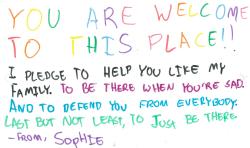 YOU ARE WELCOME
TO THIS PLACE!!
I PLEDGE TO HELP YOU LIKE MY
FAMILY. TO BE THERE WHEN YOU'RE SAD.
AND TO DEFEND YOU FROM EVERYBODY.
LAST BUT NOT LEAST, TO JUST BE THERE
-FROM, SOPHIE